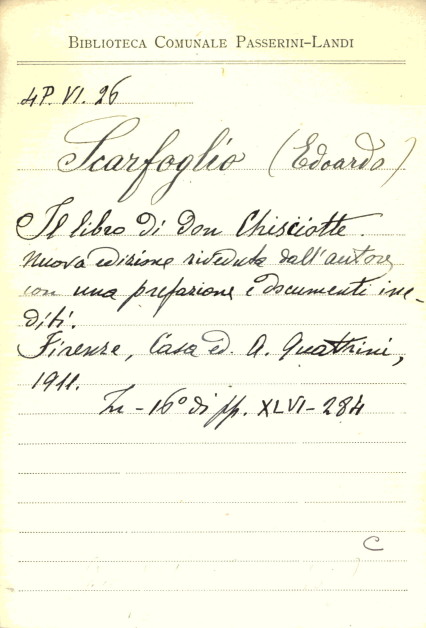 BIBLIOTECA COMUNALE PASSERINI-LANDI
4P. VI. 26
Scarfoglio (Edoardo)
Il libro di Don Chisciotte.
Nuova edizione riveduta dall'autore
con una prefazione e documenti ine-
diti.
Firenze, Casa ed. A. Quattrini,
1911.
In - 16° di pp. XLVI - 284
C